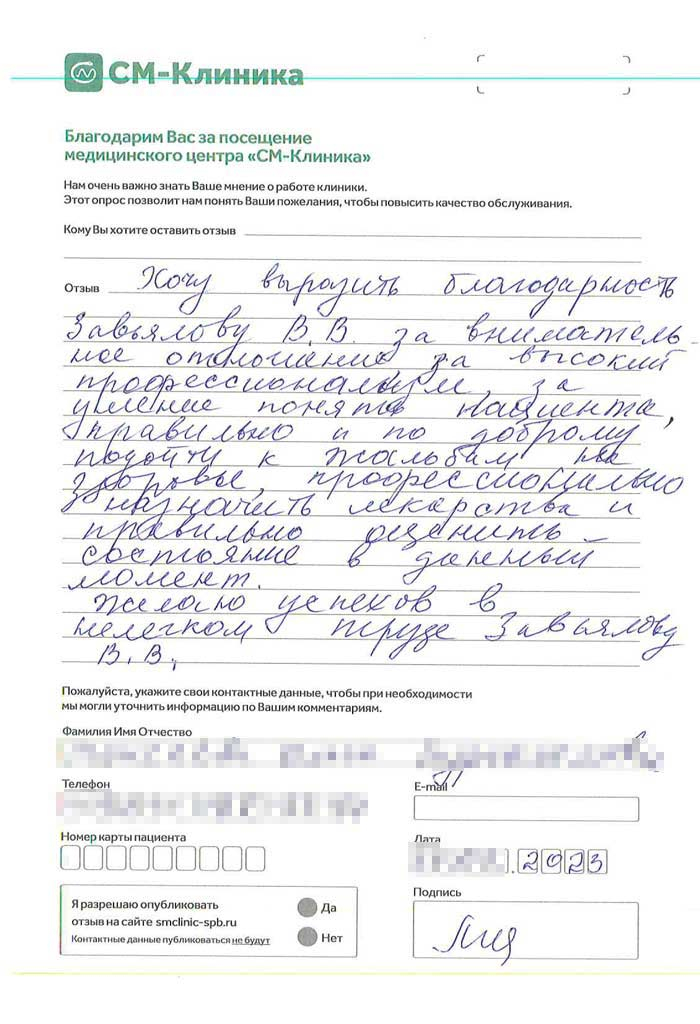 СМ-Клиника
Благодарим Вас за посещение
медицинского центра «СМ-Клиника»
Нам очень важно знать Ваше мнение о работе клиники.
Этот опрос позволит нам понять Ваши пожелания, чтобы повысить качество обслуживания.
Кому Вы хотите оставить отзыв
Отзыв Хочу выразить благодарность
Завьялову В.В. за вниматель-
ное отношение, за высокий
профессионализм, за
умение понять пациента,
правильно и по доброму
подойти к жалобам на
здоровье, профессионально
назначить лекарства и
правильно оценить
состояние в данный
момент.
Желаю успехов в
нелегком труде Завьялову
В.В.
Пожалуйста, укажите свои контактные данные, чтобы при необходимости
мы могли уточнить информацию по Вашим комментариям.
Фамилия Имя Отчество
Телефон
E-mail
Номер карты пациента
Дата
.2023
Я разрешаю опубликовать
отзыв на сайте smclinic-spb.ru
Контактные данные публиковаться не будут
Да
Нет
Подпись